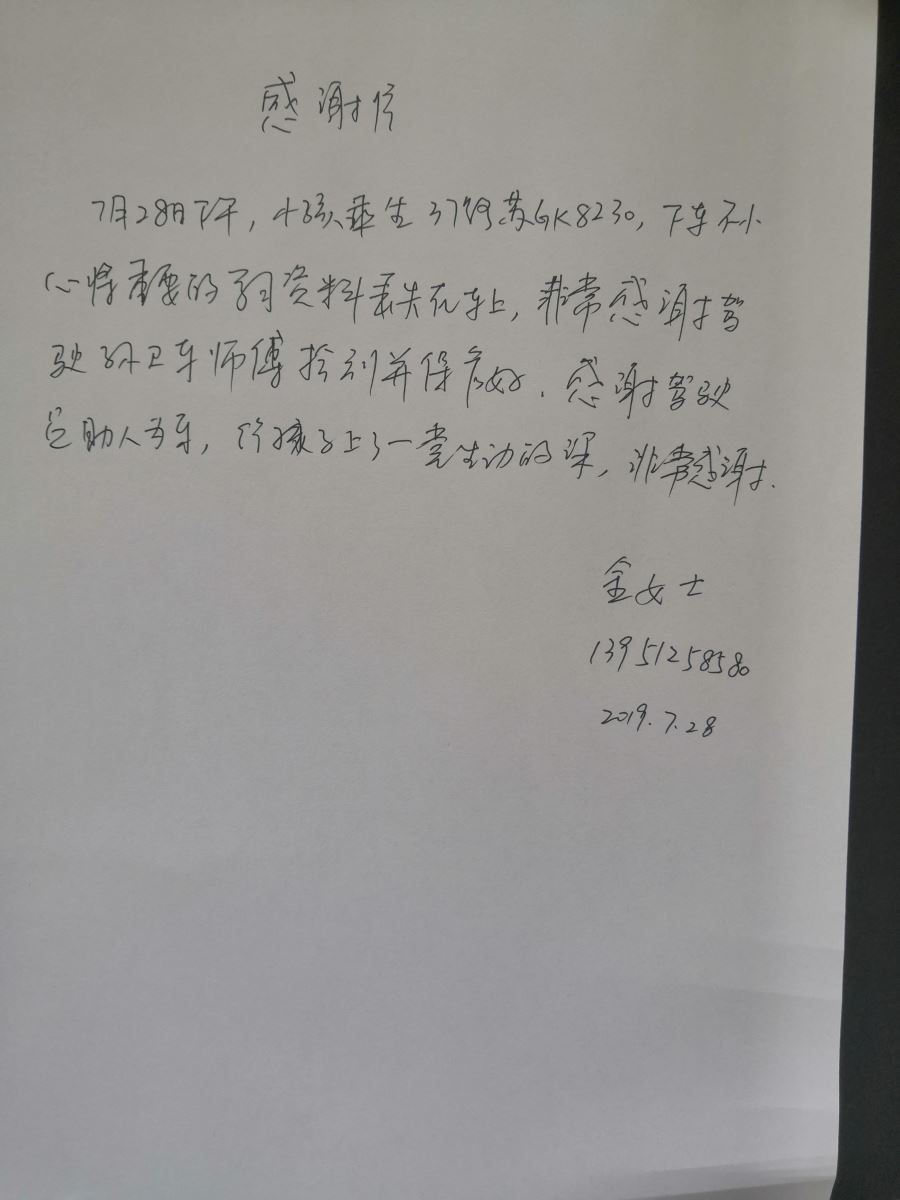 感谢信
7月28日下午，小孩乘坐37路苏GK8230，下车不小
心将重要的学习资料丢失在车上，非常感谢驾
驶员孙卫车师傅捡到并保存好．感谢驾驶
员助人为乐，给孩子上了一堂生动的课，非常感谢．
金女士
13951258580
2019.7.28